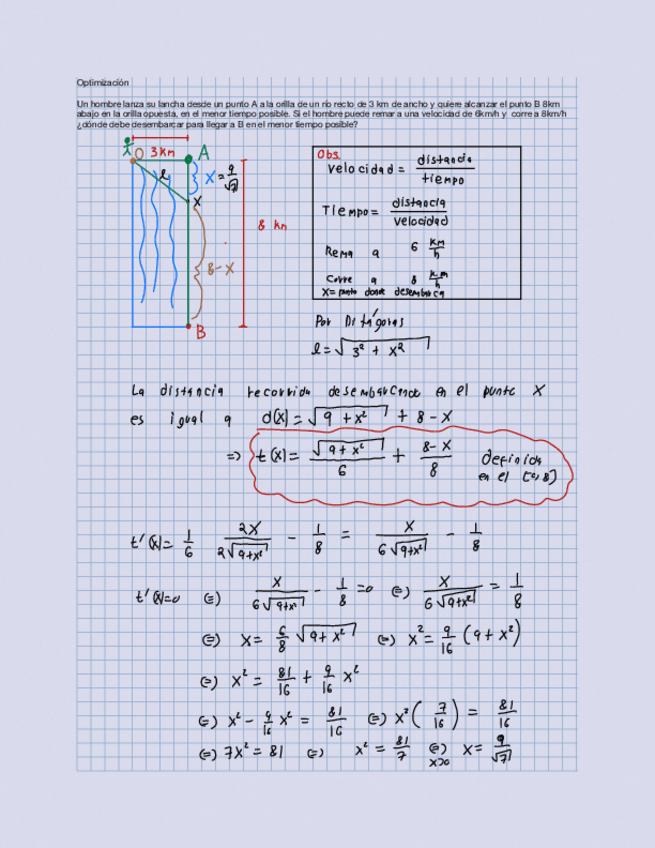 Optimización
Un hombre lanza su lancha desde un punto A a la orilla de un río recto de 3 km de ancho y quiere alcanzar el punto B 8km
abajo en la orilla opuesta, en el menor tiempo posible. Si el hombre puede remar a una velocidad de 6km/h y corre a 8km/h
¿dónde debe desembarcar para llegar a B en el menor tiempo posible?
O 3 km A
l x = 9/√7
x
8 km
8 - x
B
Obs.
Velocidad = distancia / tiempo
Tiempo = distancia / velocidad
Rema a 6 km/h
Corre a 8 km/h
X = punto donde desembarca
Por Pitágoras
l = √(3² + x²)
La distancia recorrida desembarcando en el punto X
es igual a d(x) = √(9 + x²) + 8 - x
=> t(x) = √(9 + x²)/6 + (8 - x)/8 definida
en el [0,8]
t'(x) = 1/6 2x/(2√(9+x²)) - 1/8 = x/(6√(9+x²)) - 1/8
t'(x)=0 <=> x/(6√(9+x²)) - 1/8 = 0 <=> x/(6√(9+x²)) = 1/8
<=> x = 6/8 √(9+x²) <=> x² = 9/16 (9+x²)
<=> x² = 81/16 + 9/16 x²
<=> x² - 9/16 x² = 81/16 <=> x² (7/16) = 81/16
<=> 7x² = 81 <=> x² = 81/7 <=> x>0 x = 9/√7